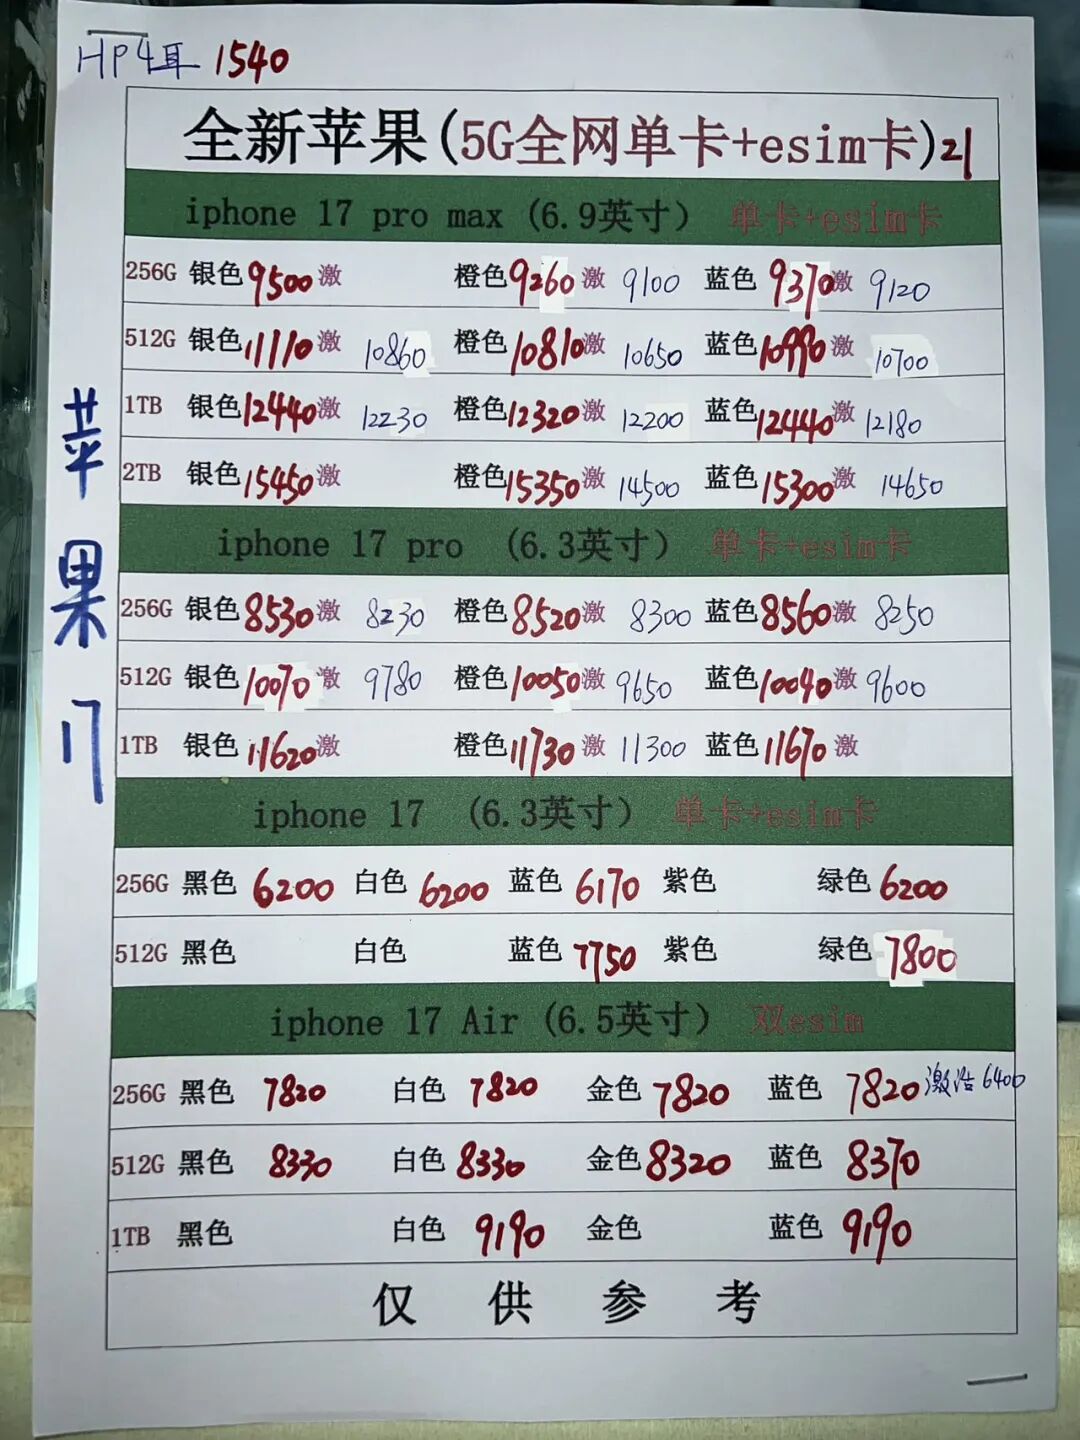 HP4耳 1540
全新苹果(5G全网单卡+esim卡)21
iphone 17 pro max (6.9英寸) 单卡+esim卡
256G 银色9500激 橙色9260激 9100 蓝色9370激 9120
512G 银色11110激 10860 橙色10810激 10650 蓝色10990激 10700
1TB 银色12440激 12230 橙色12320激 12200 蓝色12440激 12180
2TB 银色15450激 橙色15350激 14500 蓝色15300激 14650
iphone 17 pro (6.3英寸) 单卡+esim卡
256G 银色8530激 8230 橙色8520激 8300 蓝色8560激 8250
512G 银色10070激 9780 橙色10050激 9650 蓝色10040激 9600
1TB 银色11620激 橙色11730激 11300 蓝色11670激
iphone 17 (6.3英寸) 单卡+esim卡
256G 黑色 6200 白色 6200 蓝色 6170 紫色 绿色 6200
512G 黑色 白色 蓝色 7750 紫色 绿色 7800
iphone 17 Air (6.5英寸) 双esim
256G 黑色 7820 白色 7820 金色 7820 蓝色 7820 激活 6400
512G 黑色 8330 白色 8330 金色 8320 蓝色 8370
1TB 黑色 白色 9190 金色 蓝色 9190
仅供参考
苹果17